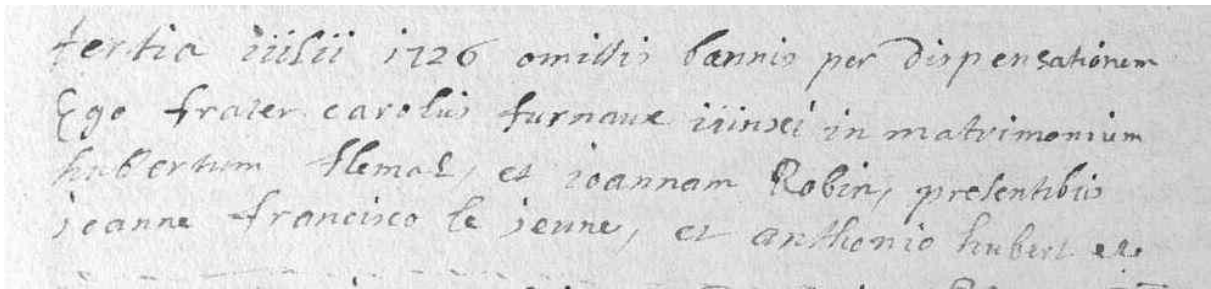 tertia iulii 1726 omissis bannis per dispensationem
Ego frater carolus furnaux iunxi in matrimonium
hubertum flemal, et ioannam Robin, presentibus
ioanne francisco le ieune, et anthonio hubert etc